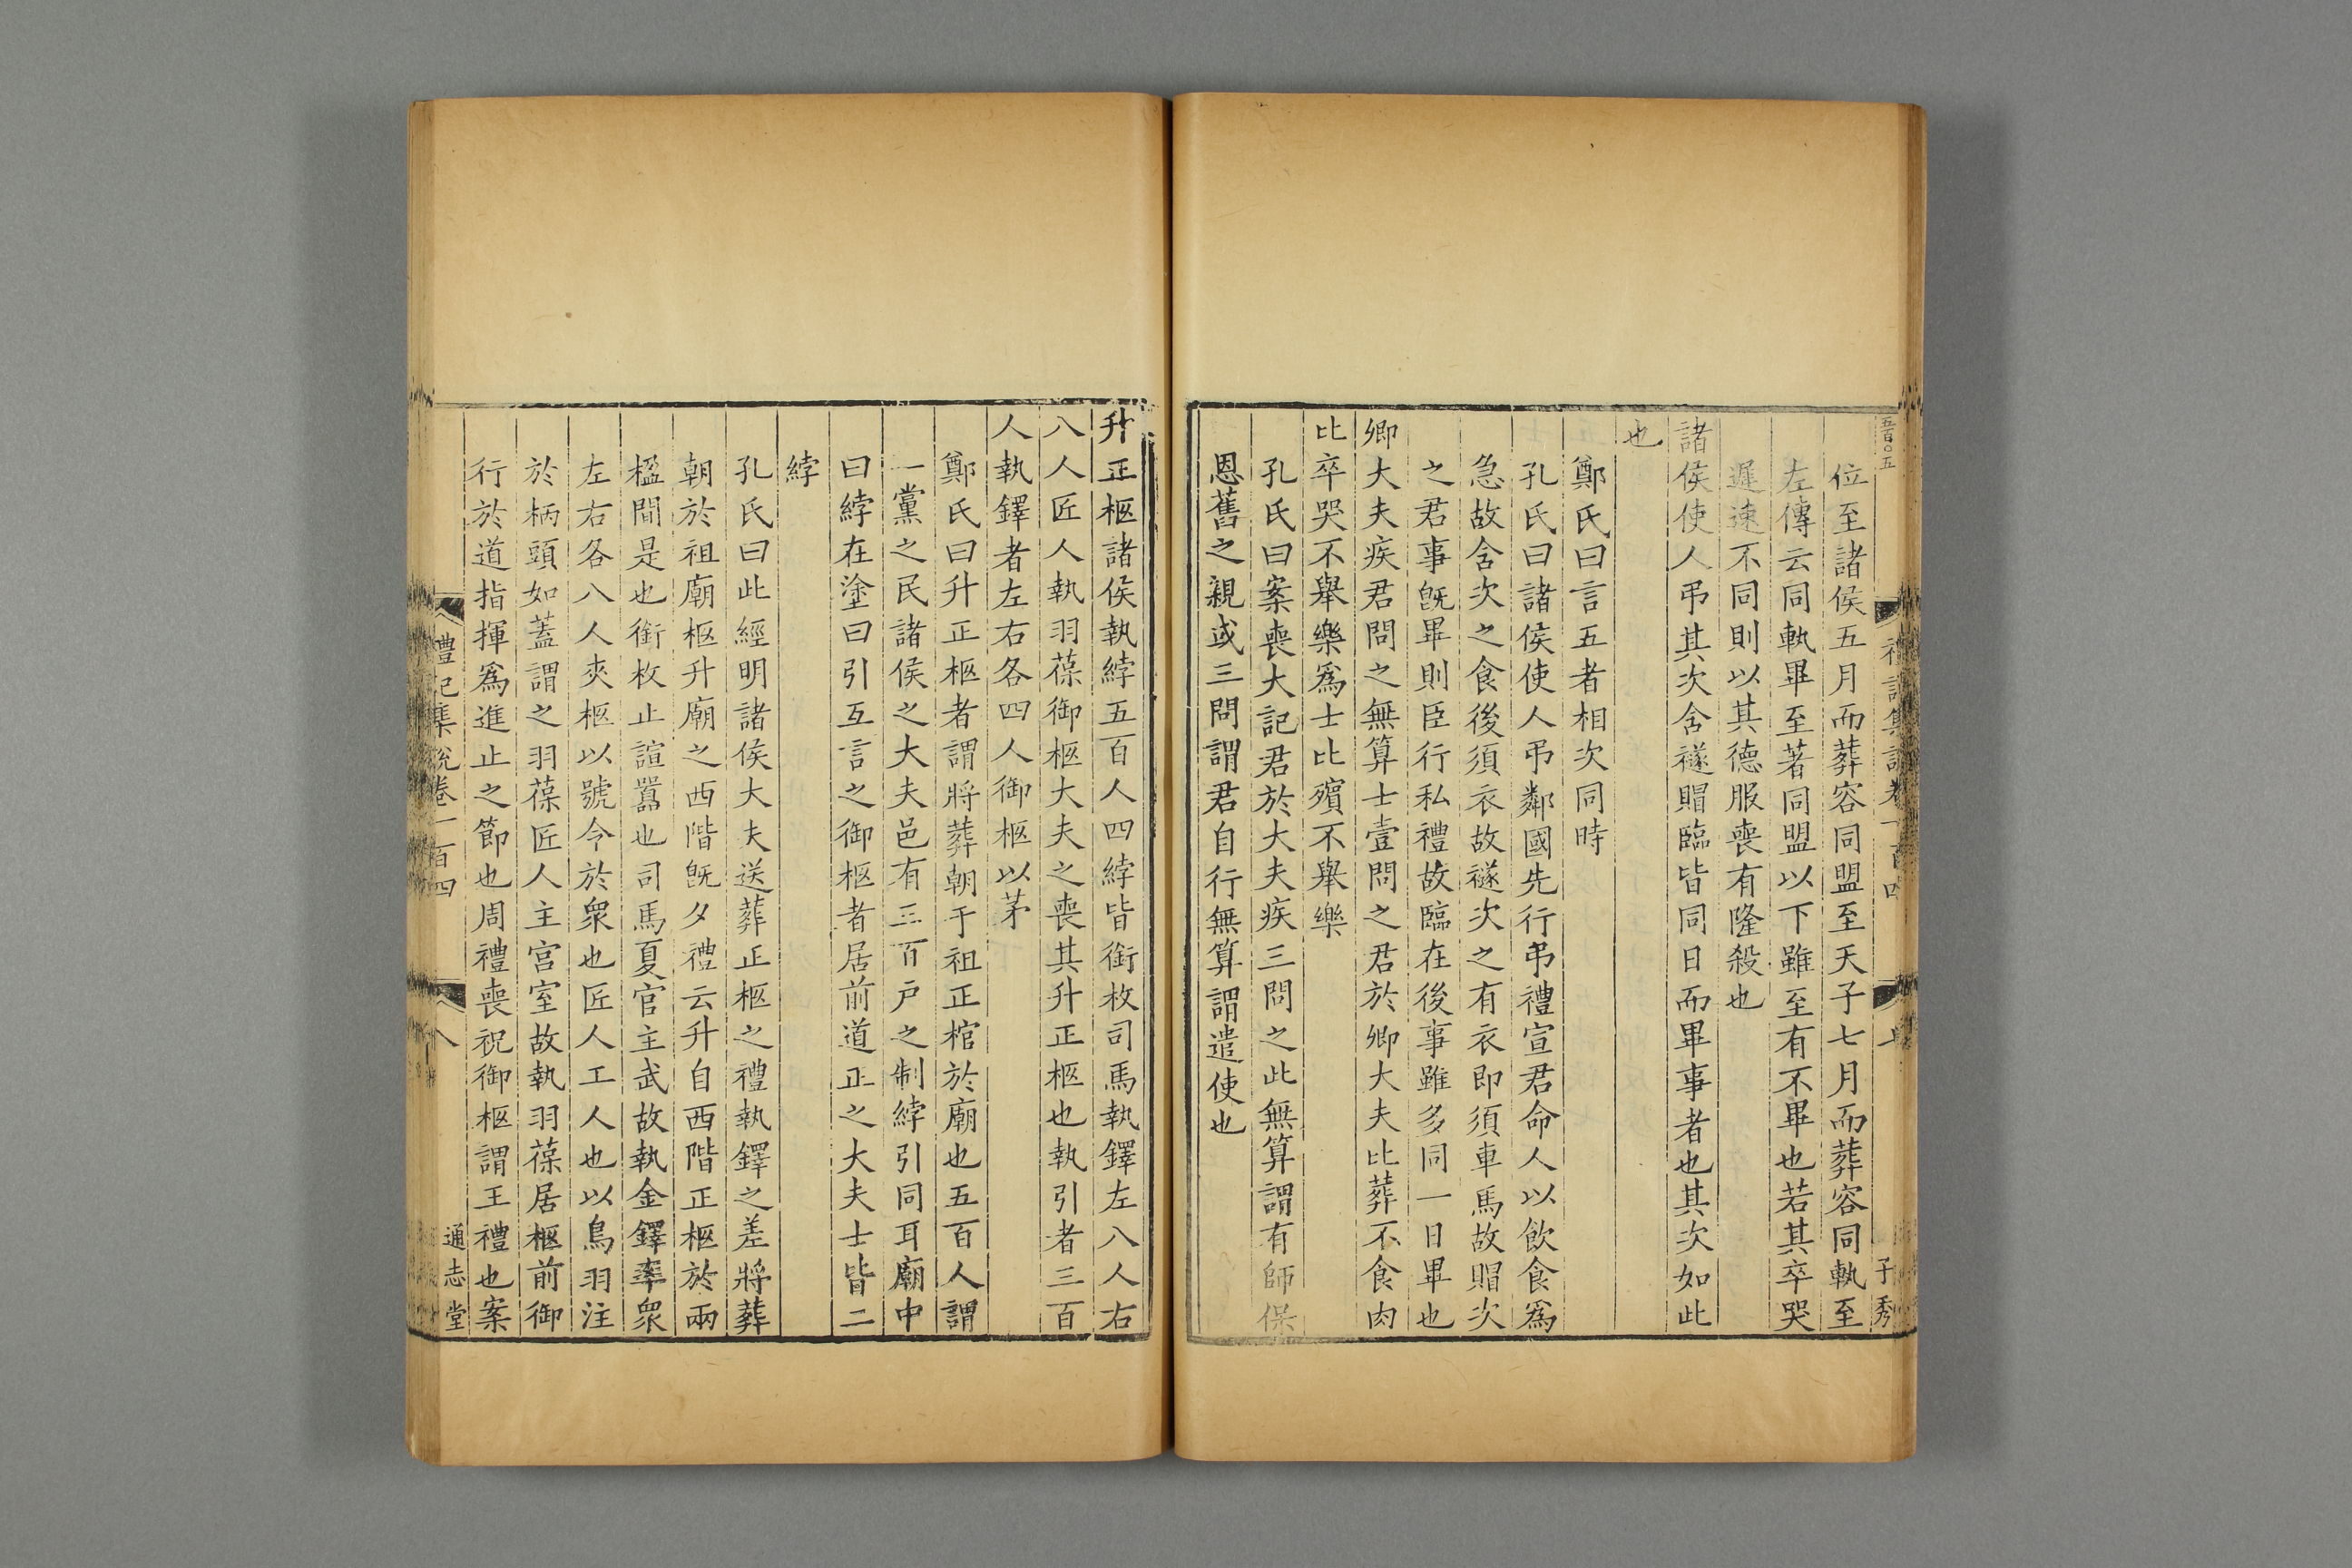 五百〇五
禮記集說卷一百四
七
子秀
位至諸侯五月而葬容同盟至天子七月而葬容同軌至
左傳云同軌畢至著同盟以下雖至有不畢也若其卒哭
遲速不同則以其德服喪有隆殺也
諸侯使人弔其次含襚賵臨皆同日而畢事者也其次如此
也
鄭氏曰言五者相次同時
孔氏曰諸侯使人弔鄰國先行弔禮宣君命人以飲食爲
急故含次之食後須衣故襚次之有衣即須車馬故賵次
之君事旣畢則臣行私禮故臨在後事雖多同一日畢也
卿大夫疾君問之無算士壹問之君於卿大夫比葬不食肉
比卒哭不舉樂爲士比殯不舉樂
孔氏曰案喪大記君於大夫疾三問之此無算謂有師保
恩舊之親或三問謂君自行無算謂遣使也
升正柩諸侯執綍五百人四綍皆銜枚司馬執鐸左八人右
八人匠人執羽葆御柩大夫之喪其升正柩也執引者三百
人執鐸者左右各四人御柩以茅
鄭氏曰升正柩者謂將葬朝于祖正棺於廟也五百人謂
一黨之民諸侯之大夫邑有三百戸之制綍引同耳廟中
曰綍在塗曰引互言之御柩者居前道正之大夫士皆二
綍
孔氏曰此經明諸侯大夫送葬正柩之禮執鐸之差將葬
朝於祖廟柩升廟之西階旣夕禮云升自西階正柩於兩
楹間是也銜枚止諠囂也司馬夏官主武故執金鐸率眾
左右各八人夾柩以號令於衆也匠人工人也以鳥羽注
於柄頭如蓋謂之羽葆匠人主宫室故執羽葆居柩前御
行於道指揮爲進止之節也周禮喪祝御柩謂王禮也案
禮記集說卷一百四
八
通志堂